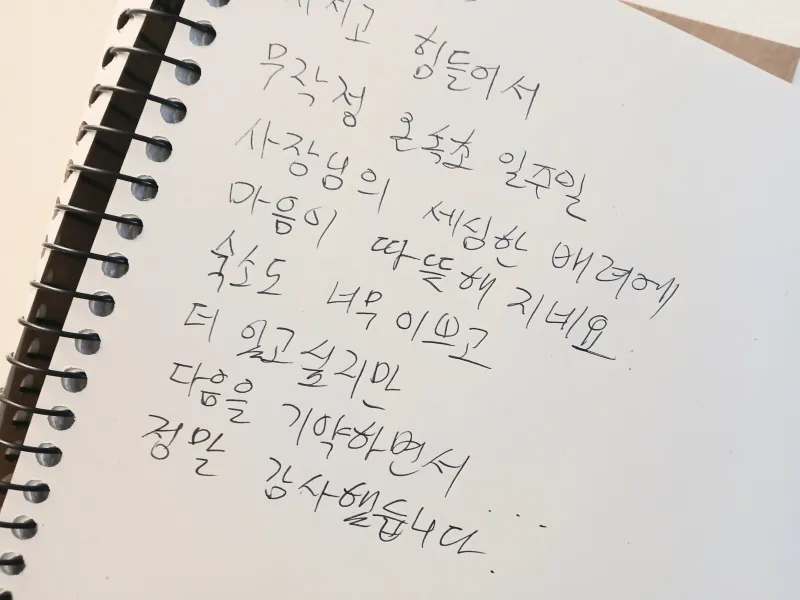 지치고 힘들어서
무작정 온 속초 일주일
사장님의 세심한 배려에
마음이 따뜻해 지네요.
숙소도 너무 이쁘고
더 있고 싶지만
다음을 기약하면서...
정말 감사했습니다.